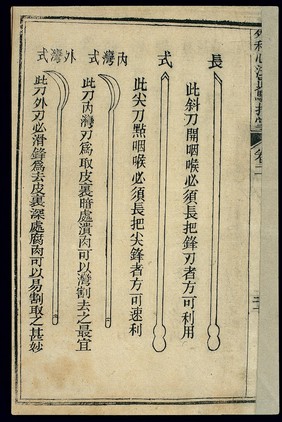 外科心法真驗指掌
卷二
長
此斜刀開咽喉必須長把鋒刃者方可利用
式
此尖刀點咽喉必須長把尖鋒者方可速利
式灣內
此刀內灣刃為取皮裏暗處潰肉可以灣割去之最宜
式灣外
此刀外刃必滑鋒為去皮裏深處腐肉可以易割取之甚妙